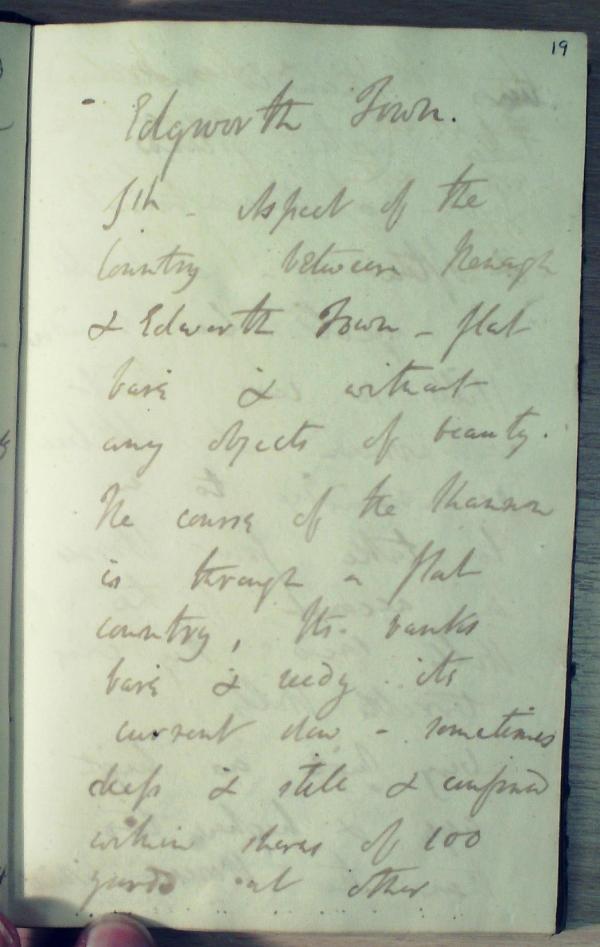 19
- Edgworth Town.
5th - Aspect of the
Country between Nenagh
& Edworth Town - flat
bare & without
any objects of beauty.
The course of the Shannon
is through a flat
country, Its banks
bare & reedy. its
current slow - sometimes
deep & still & confined
within shores of 100
yards at other